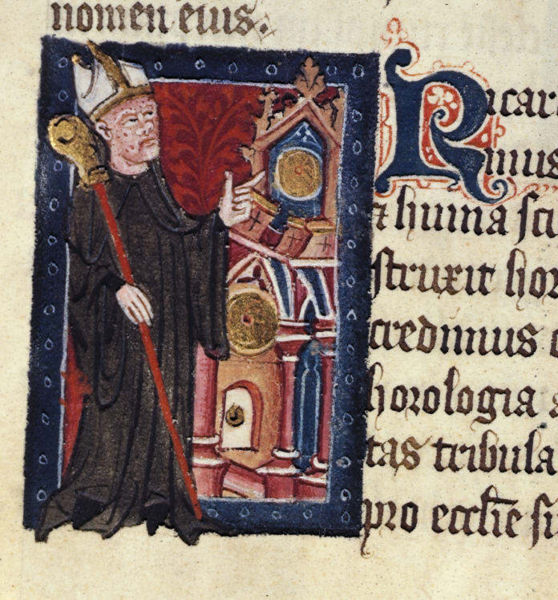 nomen eius.
Ricar
imus
& huma sci
struxit hor
credimus o
horologia a
tas tribula
pro eccl̄ie si